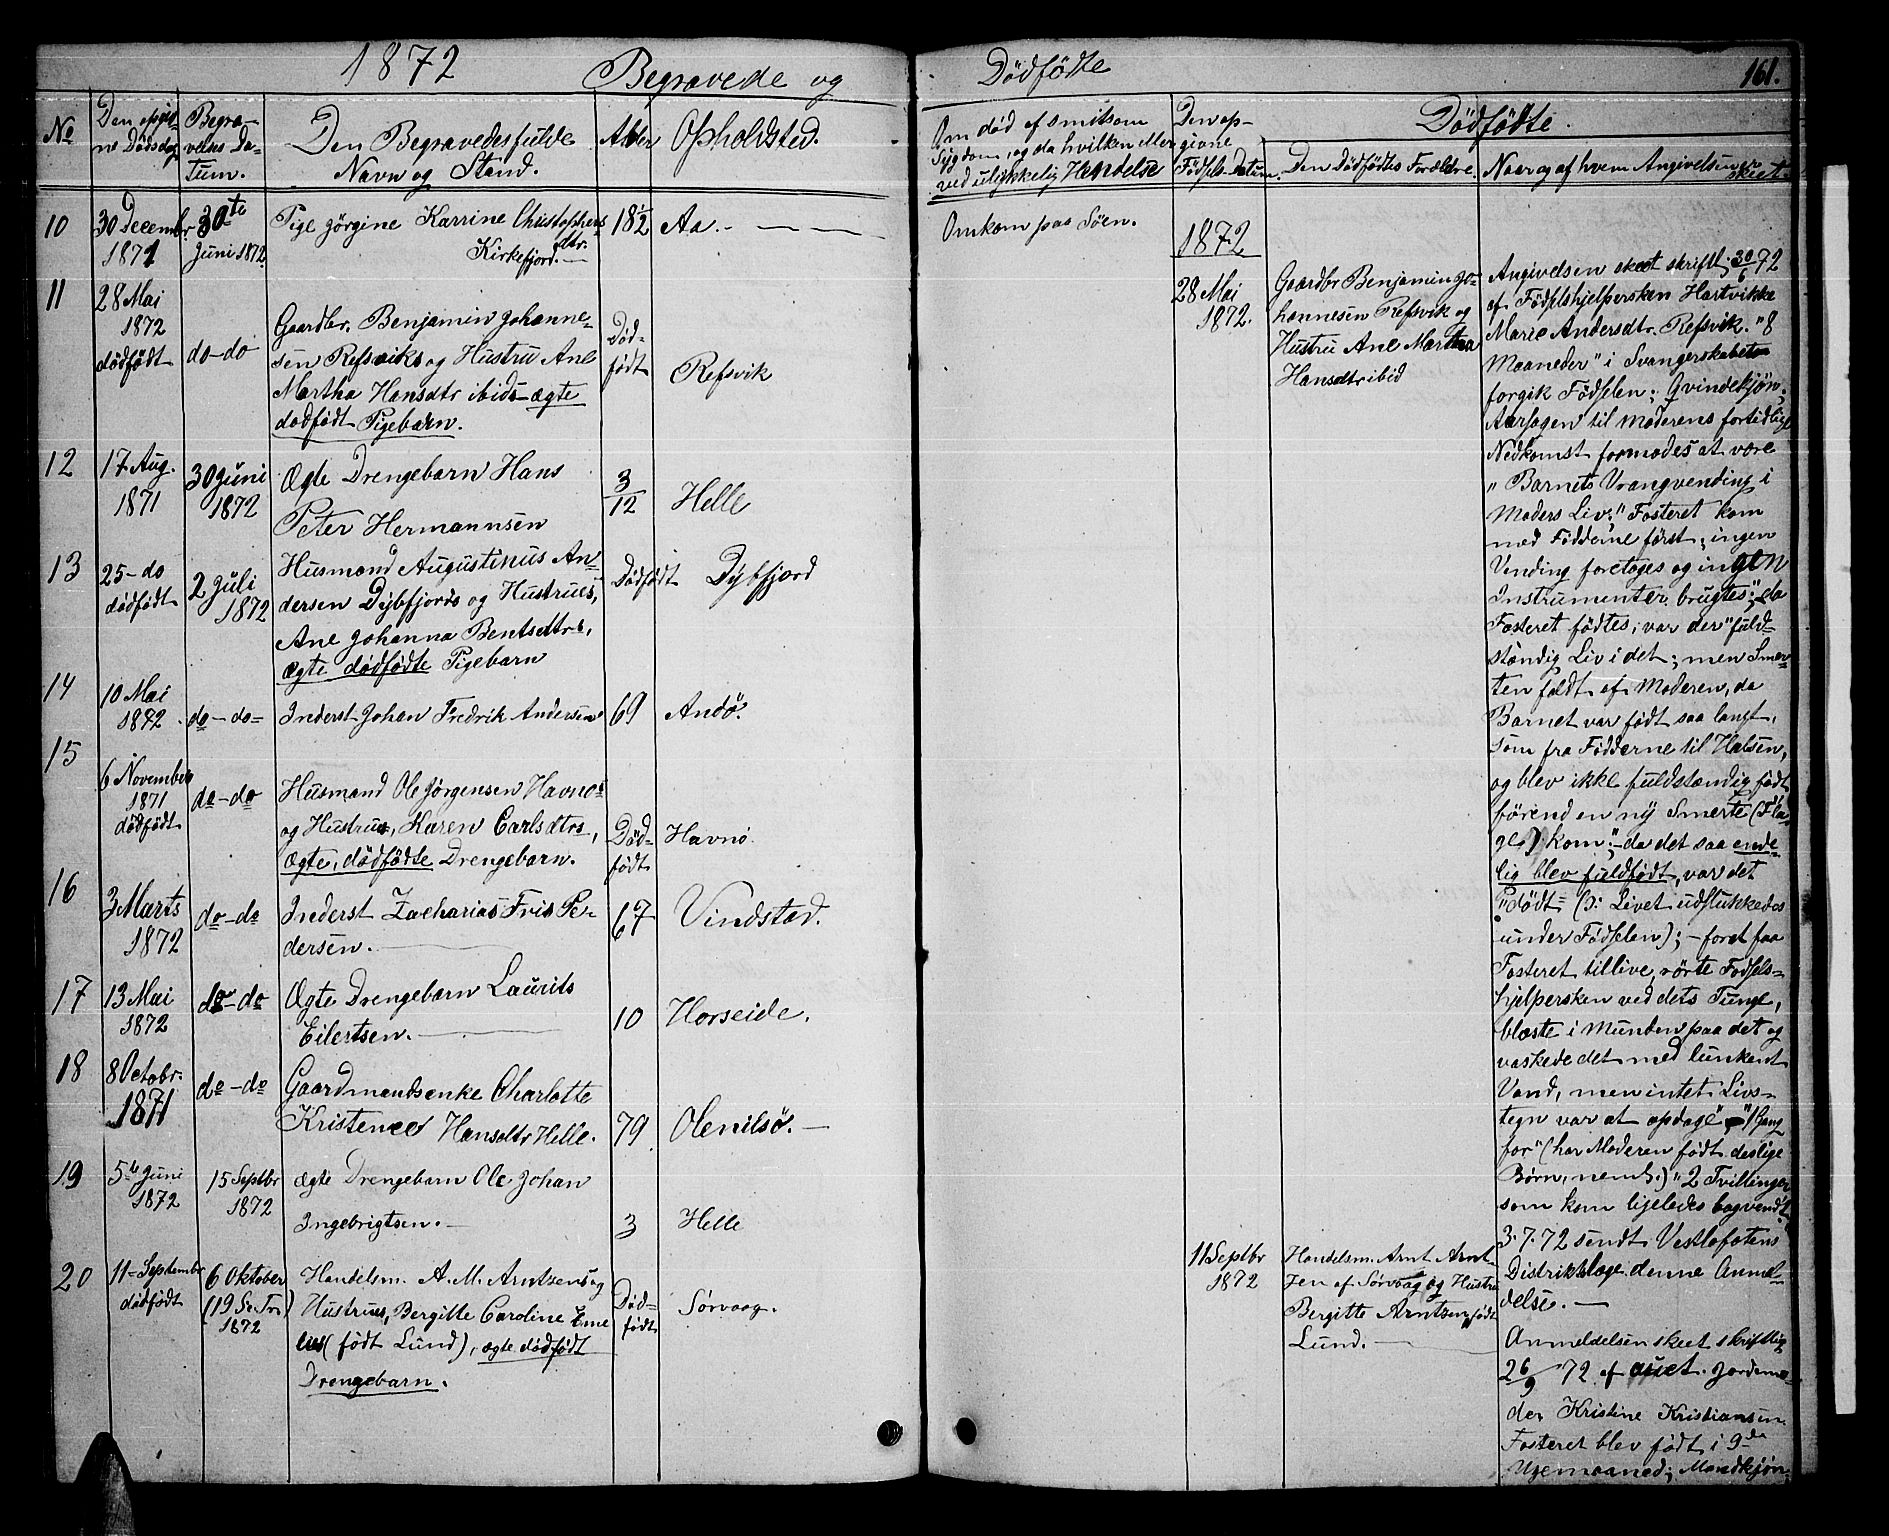 1872
Begravede og
Dödfödte
161.
No
Den opgiv-
ne Dödsdag
Begra-
velses Da-
tum.
Den Begravedes fulde
Navn og Stand.
Alder
Opholdsted.
Om död af smitsom
Sygdom, og da hvilken eller
ved ulykkelig Hendelse
Den op-
givne
Födsels-Datum.
Dödfödte.
Den Dödfödtes Forældre.
Naar og af hvem Angivelsen er
skeet.
10
30 Decembr.
1871
30te
Juni 1872.
Pige Jörgine Karrine Christophers
dtr.
Kirkefjord.
18 1/2
Aa.
Omkom paa Söen.
11
28 Mai
1872
dödfödt
do-do
Gaardbr. Benjamin Johanne-
sen Refsviks og Hustru Ane
Martha Hansdtr ibids ægte
dødfødt Pigebarn.
Död-
födt
Refsvik
1872
28 Mai
1872.
Gaardbr Benjamin Jo-
hannesen Refsvik og
Hustru Ane Martha
Hansdtr ibid
Angivelsen skeet skriftl. 30/6 72
af Födselshjelpersken Hartvikke
Marie Andersdtr. Refsvik. "8
Maaneder" i Svangerskabet
forgik Födselen; Qvindekjön;
Aarsagen til Moderens fortidlige
Nedkomst formodes at være
"Barnets Vrangvending i
Moders Liv;" Fosteret kom
med Födderne först; ingen
Vending foretoges og ingen
Instrumenter brugtes; da
Fosteret födtes, var der "fuld-
stændig Liv i det; men Smer-
ten faldt af Moderen, da
Barnet var födt saa langt,
som fra Födderne til Halsen,
og blev ikke fuldstændig födt
förend en ny Smerte (Pla-
ge) kom"; - da det saa ende-
lig blev fuldfödt, var det
"dödt" (o: Livet udslukkedes
under Födselen); - foret faa
Fosteret tillive, rörte Födsels-
hjelpersken ved dets Tunge,
blæste i Munden paa det og
vaskede det med lunkent
Vand, men intet Livs-
tegn var at opdage" - "1 Gang
för" (har Moderen födt deslige
Børn, neml.) "2 Tvillinger
som kom ligeledes bagvendt
3.7.72 sendt Vestlofotens
Distriktslæge denne Anmel-
delse. -
12
17 Aug.
1871
30 Juni
1872
Ægte Drengebarn Hans
Peter Hermannsen
3/12
Helle
13
25 - do
dödfödt
2 Juli
1872
Husmand Augustinus An-
dersen Dybfjords og Hustrues,
Ane Johanna Bentsdtrs,
ægte dödfödte Pigebarn
Dödfödt
Dybfjord
14
10 Mai
1872
do-do-
Inderst Johan Fredrik Andersen
69
Andö.
15
6 November
1871
dödfödt
do-do
Husmand Ole Jörgensen Havnös
og Hustrus, Karen Carlsdtrs,
ægte, dödfödte Drengebarn.
Död-
födt
Havnö.
16
3 Marts
1872
do-do
Inderst Zacharias Friis Pe-
dersen.
67
Vindstad.
17
13 Mai
1872
do-do
Ægte Drengebarn Laurits
Eilertsen.
10
Horseide.
18
8 Octobr.
1871
do-do
Gaardmandsenke Charlotte
Kristence Hansdtr Helle.
79
Olenilsö.
19
5te Juni
1872
15 Septbr
1872
ægte Drengebarn Ole Johan
Ingebrigtsen.
3
Helle
20
11 Septembr
dödfödt
6 Oktober
(19 S. Tr.)
1872
Handelsm. A. M. Arntzens og
Hustrus, Bergitte Caroline Eme
lies (födt Lund), ægte dödfödt
Drengebarn.
Död-
födt
Sörvaag.
11 Septbr
1872
Handelsm. Arnt Arnt-
zen af Sörvaag og Hustru
Bergitte Arntzen, födt
Lund.
Anmeldelsen skeet skriftlig
26/9 72 af Jordemo-
der Kristine Kristiansen.
Fosteret blev födt i 9de
Ugemaaned; Mandkjön.